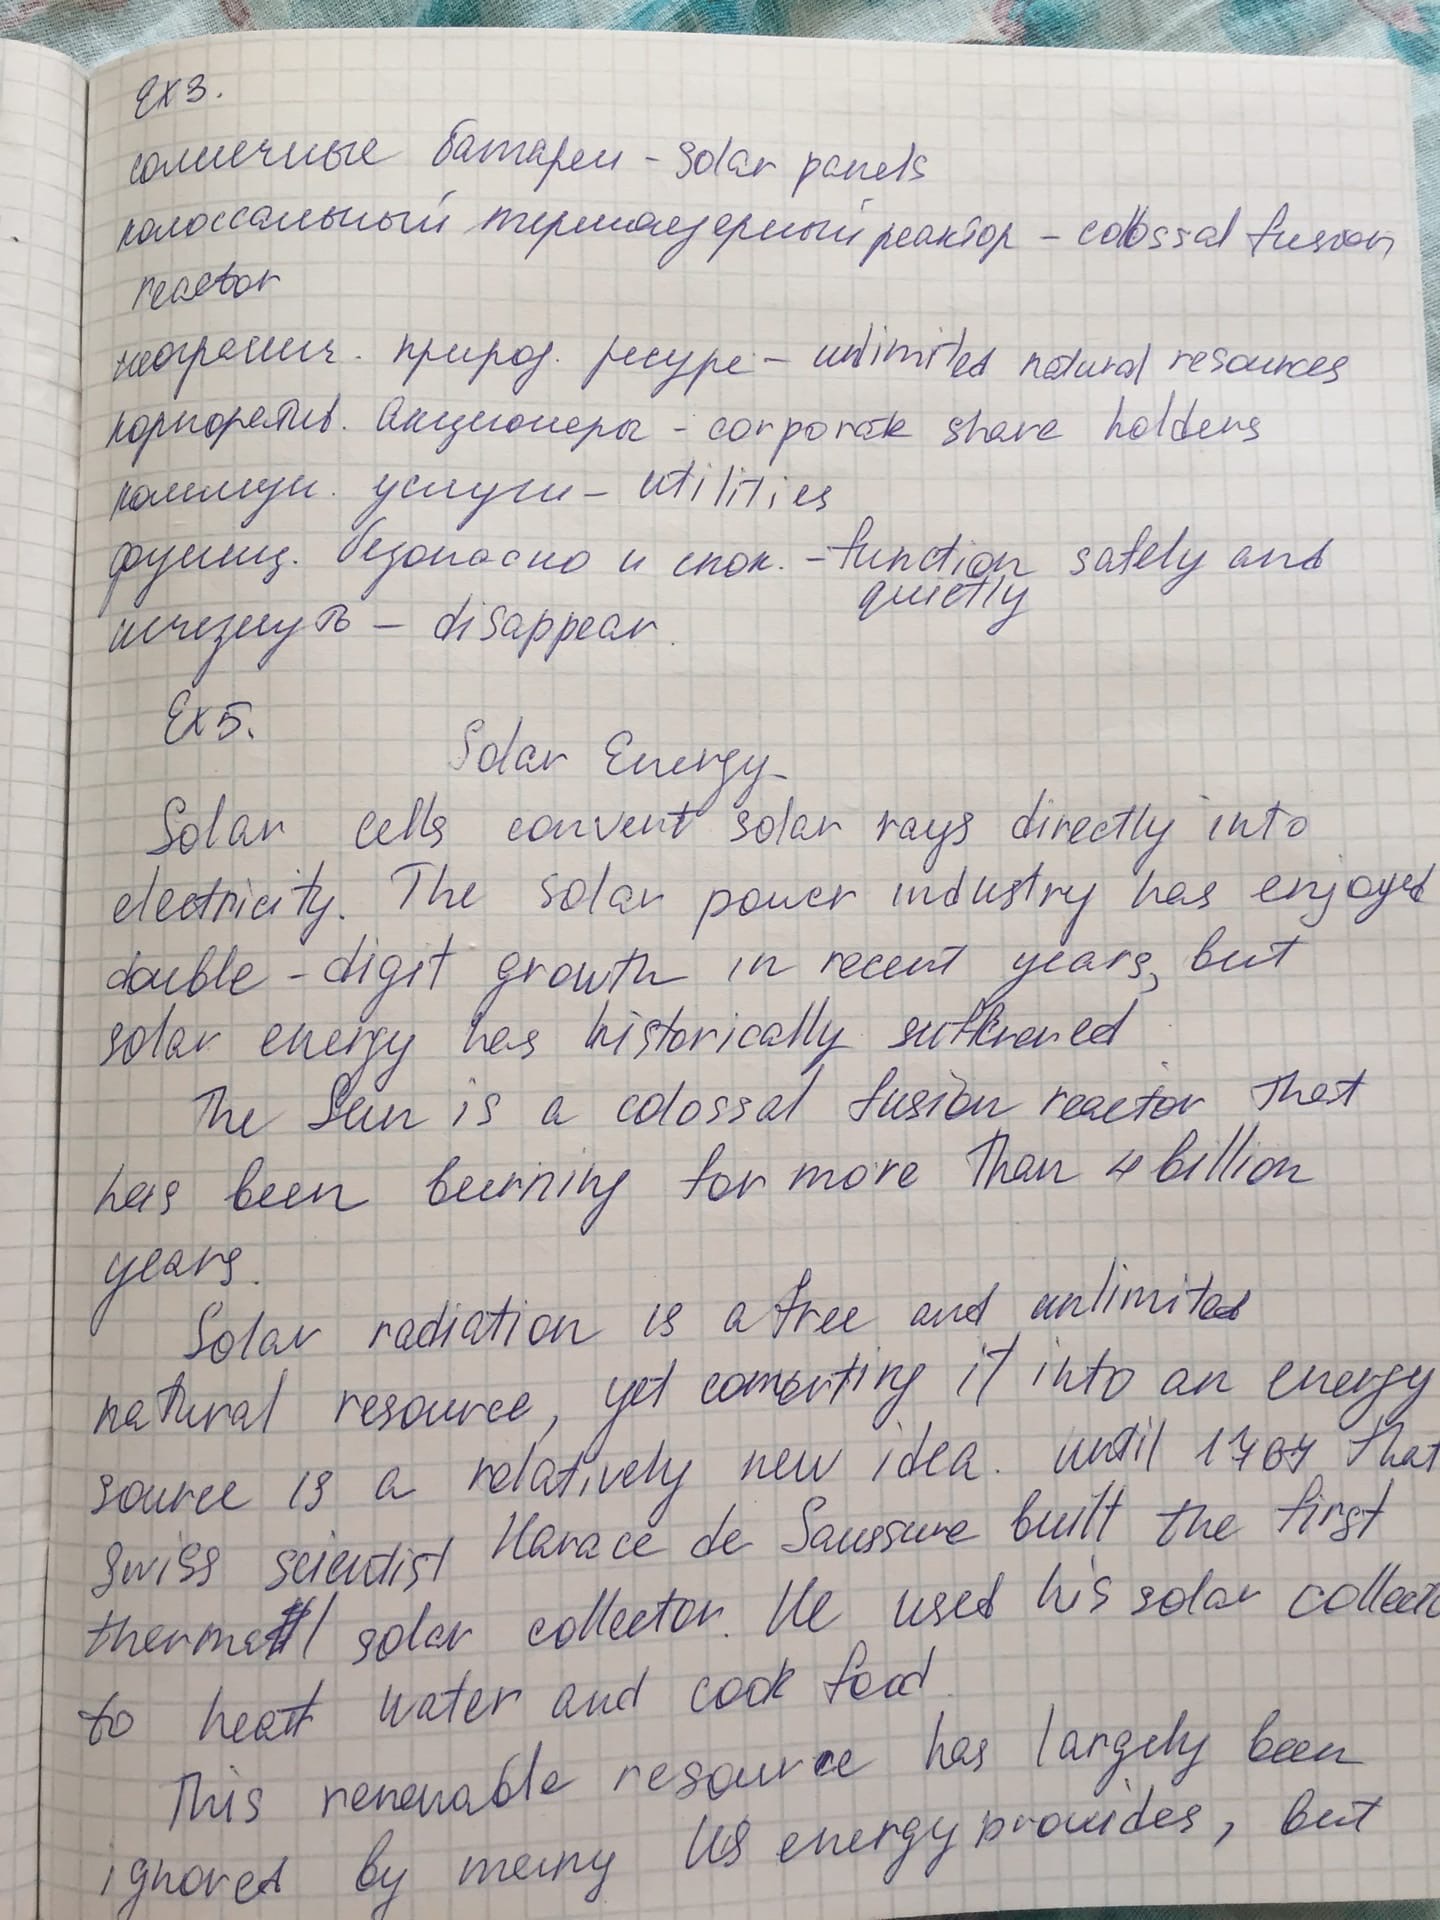 Ex 3.
солнечные батареи - solar panels
колоссальный термоядерный реактор - colossal fusion
reactor
неогранич. природ. ресурс - unlimited natural resources
корпоратив. акционеры - corporate share holders
коммун. услуги - utilities
функц. безопасно и спок. - function safely and
quietly
исчезнуть - disappear.
Ex 5.
Solar Energy
Solar cells convert solar rays directly into
electricity. The solar power industry has enjoyed
double - digit growth in recent years, but
solar energy has historically
The Sun is a colossal fusion reactor that
has been burning for more than 4 billion
years.
Solar radiation is a free and unlimited
natural resource, yet converting it into an energy
source is a relatively new idea. Until 1767 that
swiss scientist Harace de Saussure built the first
thermal solar collector. He used his solar collecto
to heat water and cook food.
This renewable resource has largely been
ignored by many US energy provides, but